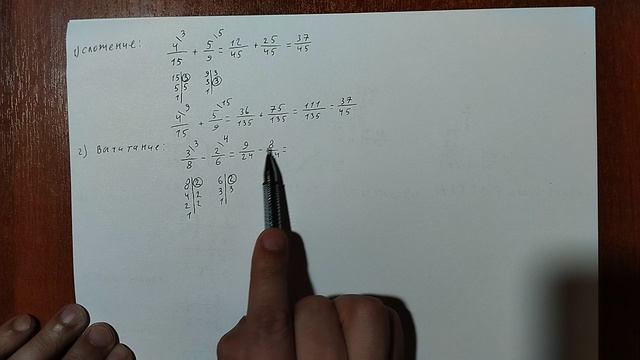 1) сложение: 4/15 + 5/9 = 12/45 + 25/45 = 37/45
3 5
15 | 3 9 | 3
5 | 5 3 | 3
1 | 1 |
9 15
4/15 + 5/9 = 36/135 + 75/135 = 111/135 = 37/45
3 4
2) Вычитание: 3/8 - 2/6 = 9/24 - 8/24 =
8 | 2 6 | 2
4 | 2 3 | 3
2 | 2 1 |
1 |